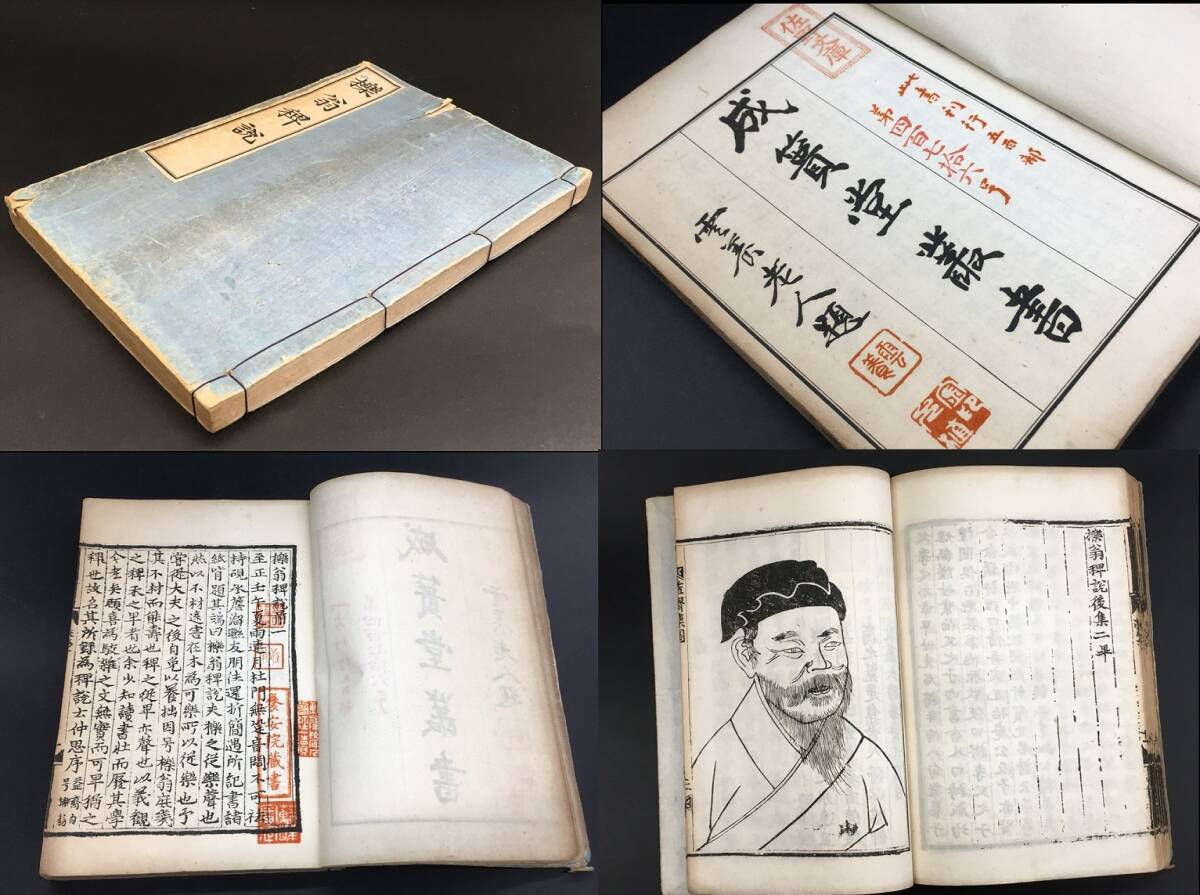 櫟翁稗說
此書刊行五百部
第四百七拾六号
成簣堂叢書
雲養老人題
雲養
櫟翁稗說前一
至正壬午夏雨連月杜門無跫音悶不可袪
持硯承簷溜聯友朋往還折簡遇所記書諸
紙背題其端曰櫟翁稗說夫櫟之從樂聲也
然以不材遠害在木爲可樂所以從樂也予
甞從大夫之後自免以養拙因号櫟翁庶幾
其不材而能壽也稗之從卑亦聲也以義觀
之稗禾之卑者也余少知讀書壯而廢其學
今老矣顧喜爲駁雜之文無實而可卑猶之
稗也故名其所録爲稗說云仲思序
養安院藏書
櫟翁稗說後集二畢